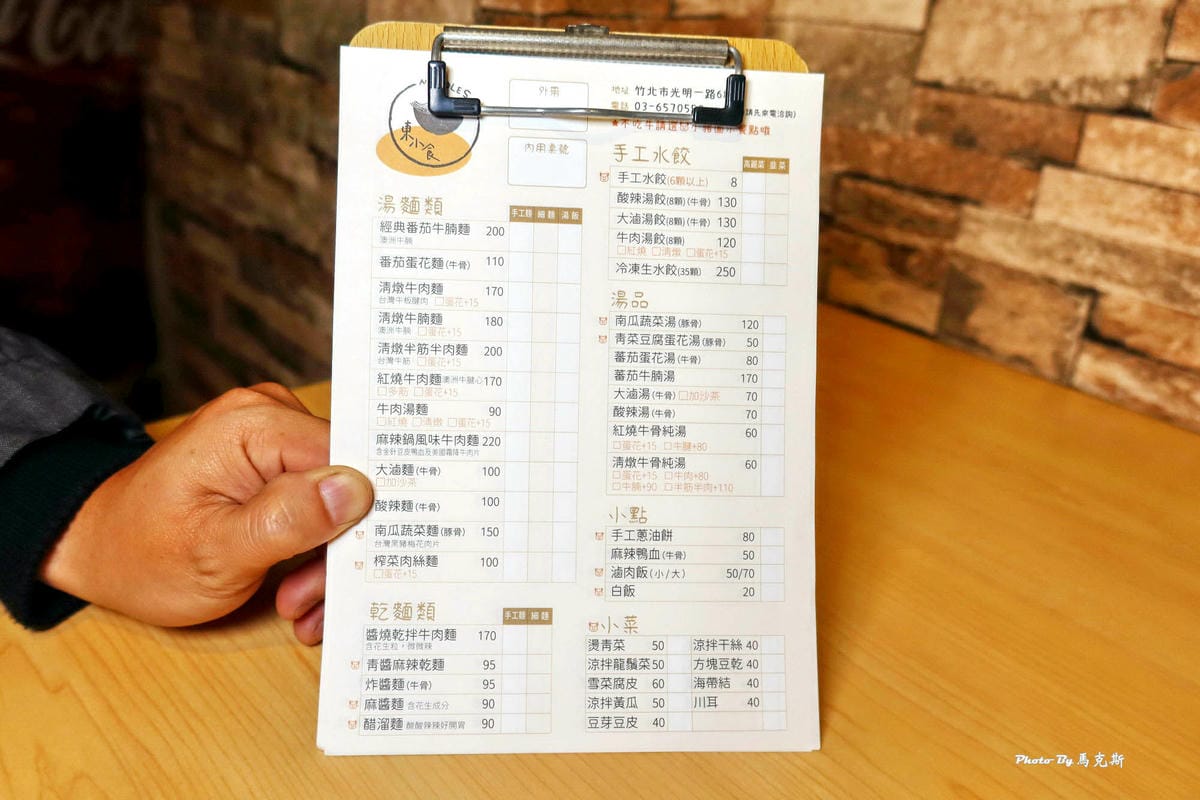 NOODLES
東小食
外帶
內用桌號
地址 竹北市光明一路6
電話 03-65705
請先來電洽詢)
湯麵類
手工麵 細麵 湯飯
經典番茄牛腩麵 200
澳洲牛腩
番茄蛋花麵(牛骨) 110
清燉牛肉麵 170
台灣牛板腱肉 □蛋花+15
清燉牛腩麵 180
澳洲牛腩 □蛋花+15
清燉半筋半肉麵 200
台灣牛筋 □蛋花+15
紅燒牛肉麵 澳洲牛腱心 170
□多筋 □蛋花+15
牛肉湯麵 90
□紅燒 □清燉 □蛋花+15
麻辣鍋風味牛肉麵 220
含金針豆皮鴨血及美國霜降牛肉片
大滷麵(牛骨) 100
□加沙茶
酸辣麵(牛骨) 100
南瓜蔬菜麵(豚骨) 150
台灣黑豬梅花肉片
榨菜肉絲麵 100
□蛋花+15
乾麵類
手工麵 細麵
醬燒乾拌牛肉麵 170
含花生粒,微微辣
青醬麻辣乾麵 95
炸醬麵(牛骨) 95
麻醬麵 含花生成分 90
醋溜麵 酸酸辣辣好開胃 90
手工水餃
高麗菜 韭菜
手工水餃(6顆以上) 8
酸辣湯餃(8顆)(牛骨) 130
大滷湯餃(8顆)(牛骨) 130
牛肉湯餃(8顆) 120
□紅燒 □清燉 □蛋花+15
冷凍生水餃(35顆) 250
湯品
南瓜蔬菜湯(豚骨) 120
青菜豆腐蛋花湯(豚骨) 50
蕃茄蛋花湯(牛骨) 80
蕃茄牛腩湯 170
大滷湯(牛骨) □加沙茶 70
酸辣湯(牛骨) 70
紅燒牛骨純湯 60
□蛋花+15 □牛腱+80
清燉牛骨純湯 60
□蛋花+15 □牛肉+80
□牛腩+90 □半筋半肉+110
小點
手工蔥油餅 80
麻辣鴨血(牛骨) 50
滷肉飯(小/大) 50/70
白飯 20
小菜
燙青菜 50 涼拌干絲 40
涼拌龍鬚菜 50 方塊豆乾 40
雪菜腐皮 60 海帶結 40
涼拌黃瓜 50 川耳 40
豆芽豆皮 40
Photo By 馬克斯